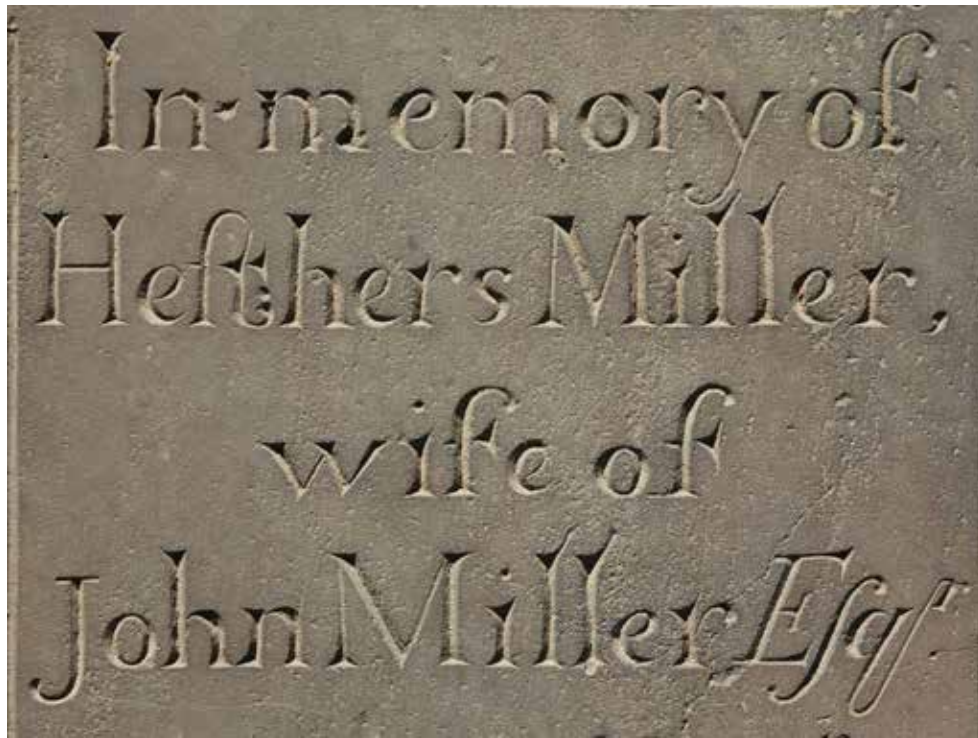 In memory of
Heſthers Miller,
wife of
John Miller Eſqʳ